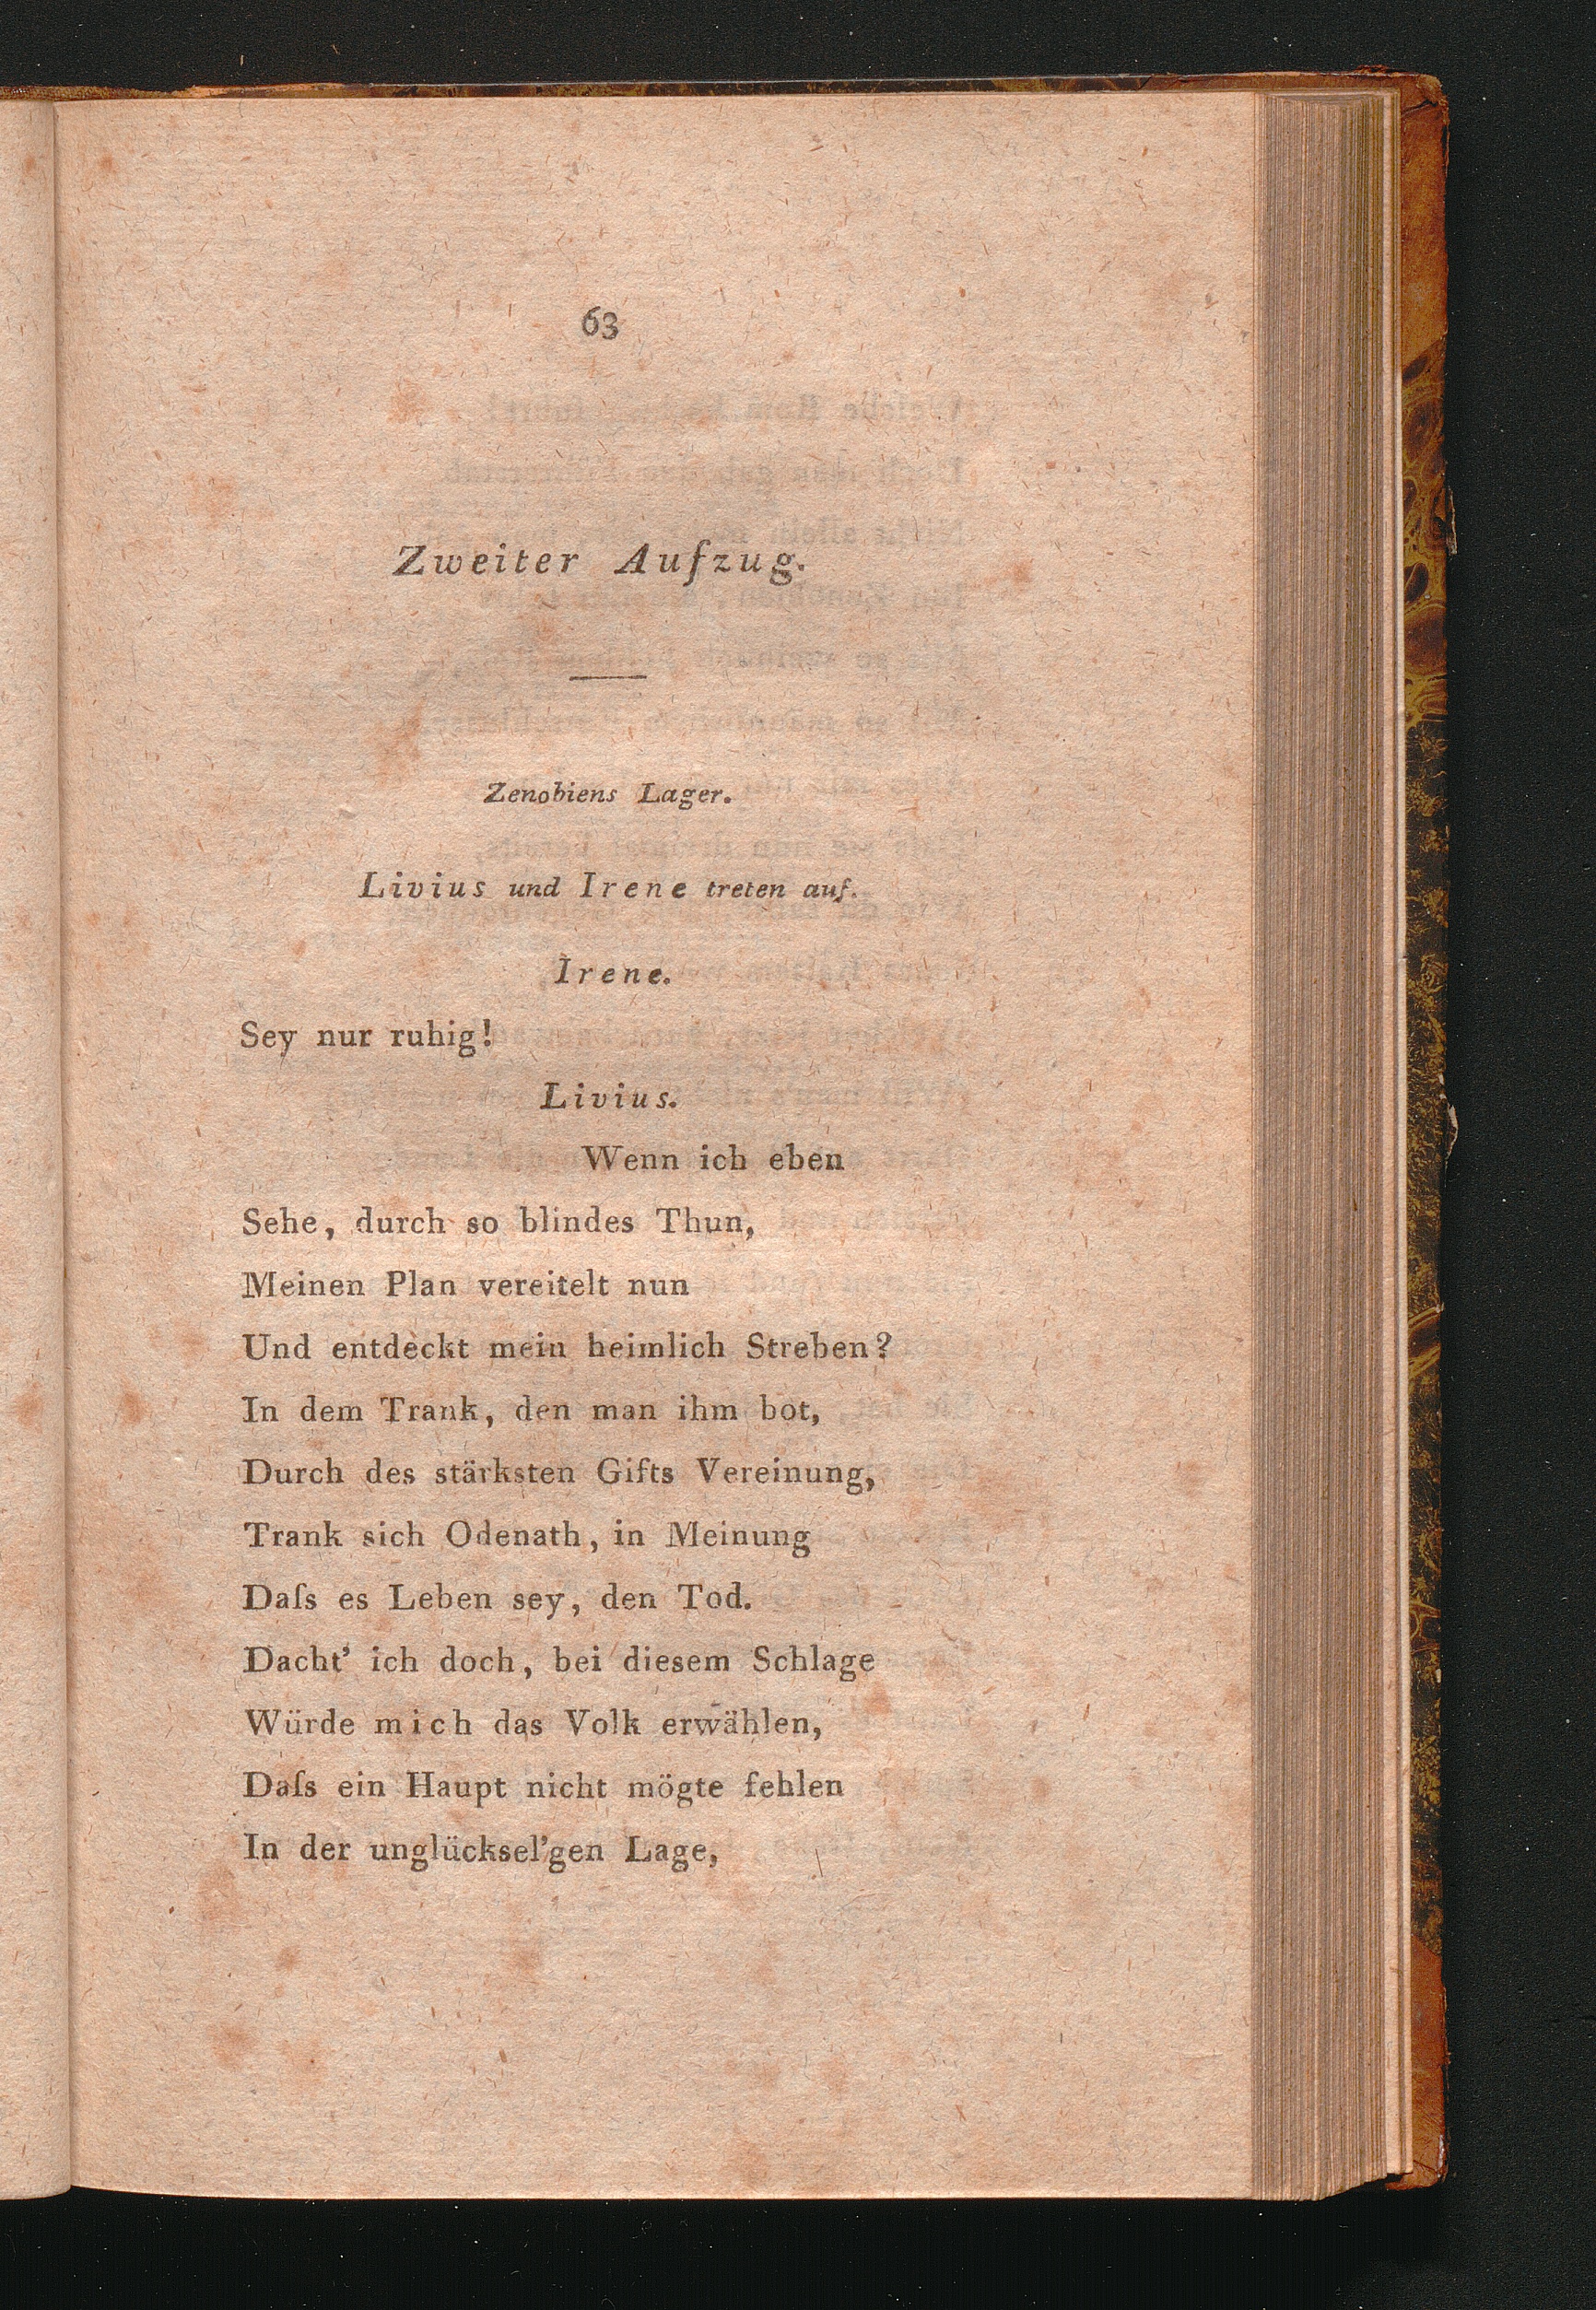 63
Zweiter Aufzug.
Zenobiens Lager.
Livius und Irene treten auf.
Irene.
Sey nur ruhig!
Livius.
Wenn ich eben
Sehe, durch so blindes Thun,
Meinen Plan vereitelt nun
Und entdeckt mein heimlich Streben?
In dem Trank, den man ihm bot,
Durch des stärksten Gifts Vereinung,
Trank sich Odenath, in Meinung
Daſs es Leben sey, den Tod.
Dacht' ich doch, bei diesem Schlage
Würde mich das Volk erwählen,
Daſs ein Haupt nicht mögte fehlen
In der unglücksel'gen Lage,